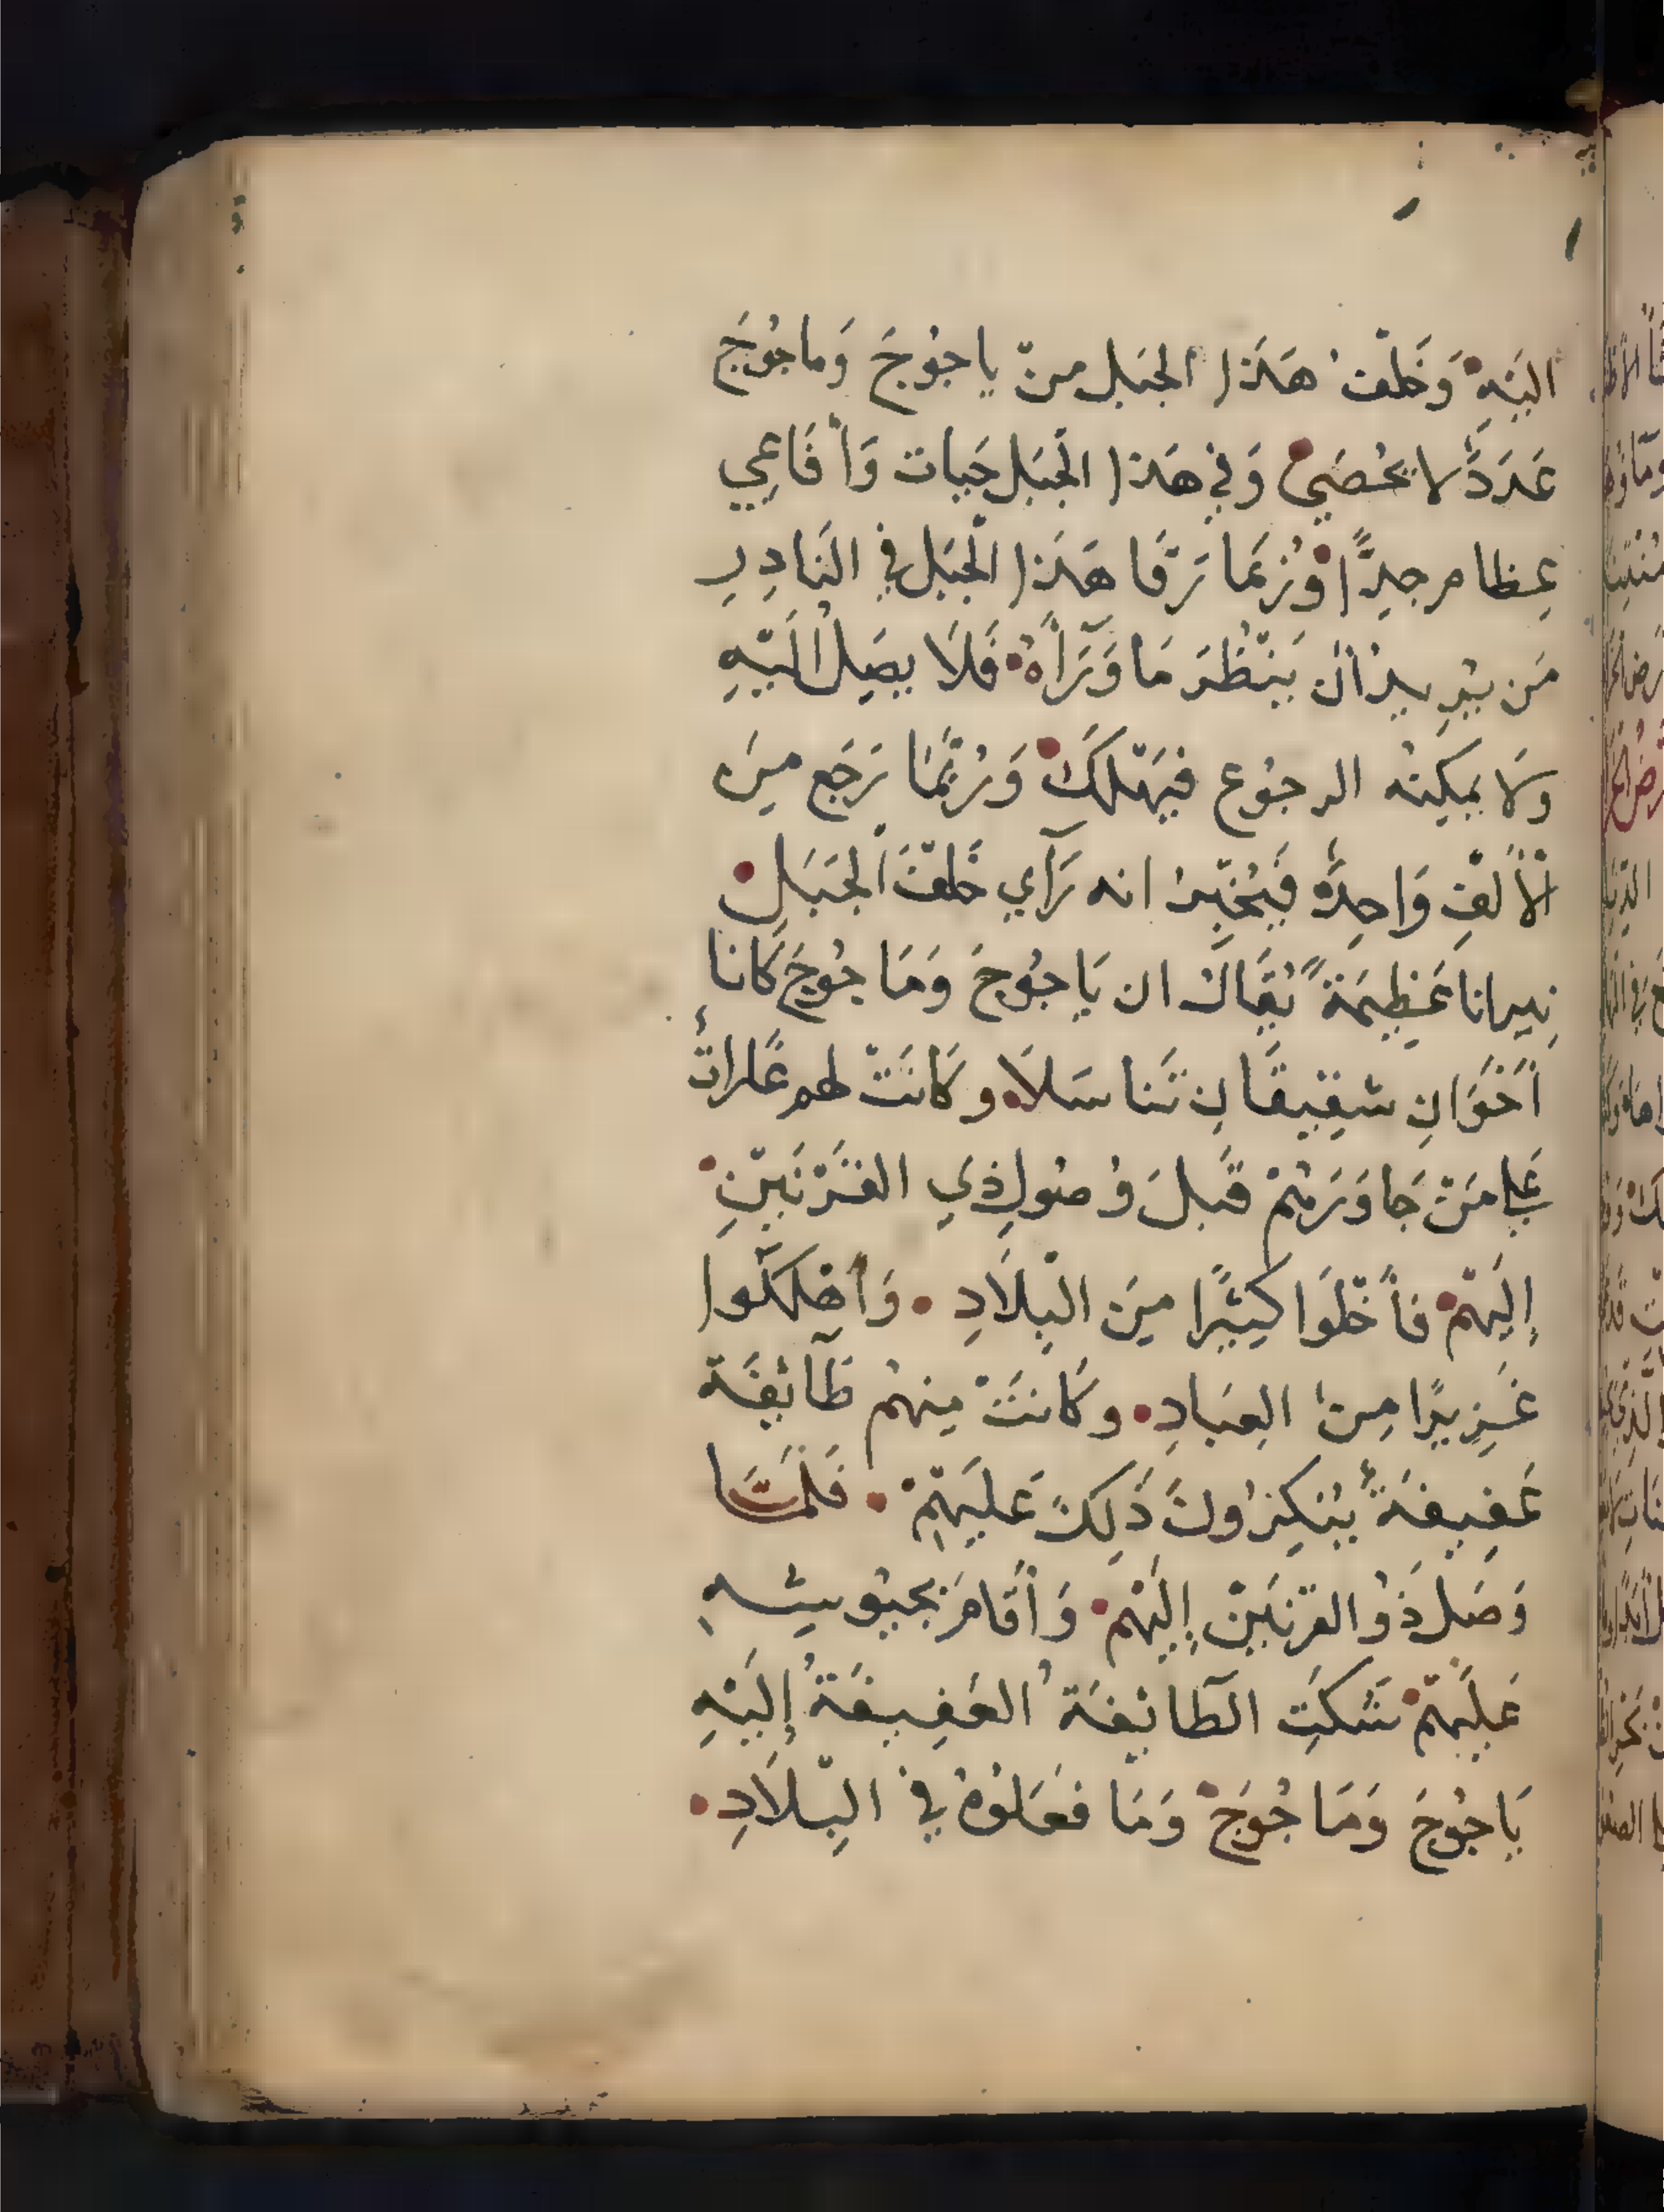 اليَهِ وَخَلْفَ هَذَا الجَبَل مِنْ ياجُوجَ وَماجُوجَ
عَدَدً لا يُحْصَى وَفِي هَذا الْجَبَل حَيات وَأَفَاعِي
عِظام جِدًّا وَرُبَمَا تَرَقَّا هَذَا الْجَبَل فِي النَادِرِ
مَن يُرِيدُ أَنْ يَنْظُرَ مَا وَرَآءَهُ فَلَا يصِلُ إِلَيْهِ
وَلَا يمكِنُه الرجُوع فيَهْلكَ وَرُبَّمَا رَجَع مِنَ
الْأَلْفِ وَاحِدٌ فَيُخْبِرُ انه رَآي خَلْفَ الْجَبَلِ
نِيرانا عَظِيمَةً يُقَالُ ان يَاجُوجَ وَمَاجُوجَ كَانا
أَخَوَانِ شقِيقَانِ تَناسَلَا وكَانَتْ لهم غَارات
عَلي مَنْ جَاوَرَهُمْ قَبلَ وُصُولِ ذِي القَرْنَيْنِ
إِلَيهِمْ فأَخْلَوا كَثِيرًا مِنَ البِلَادِ وَأَهْلَكُوا
غَزِيرًا مِنَ العِبَادِ وكَانَتْ مِنهُم طَآئِفَة
عَفِيفَةٌ يُنْكِرُونَ ذَلِكَ عَلَيهِمْ فَلَمَّا
وَصَلَ ذُو القَرْنَيْنِ إِلَيْهِمْ وَأَقَامَ بجيُوشِهِ
عَلَيْهِمْ شَكَتِ الطَّائِفَةُ العَفِيفَةُ إِلَيْهِ
يَاجُوجَ وَمَاجُوجَ وَمَا فَعَلُوهُ فِي البِلَادِ